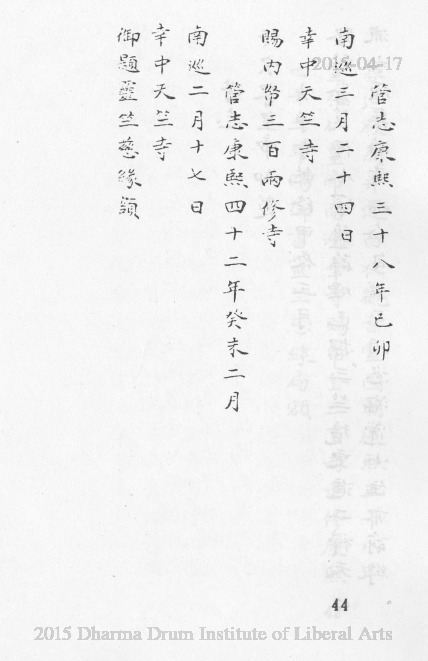 管志康熙三十八年己卯
南巡三月二十四日
幸中天竺寺
賜内帑三百兩修寺
管志康熙四十二年癸未二月
南巡二月十七日
幸中天竺寺
御題靈竺慈緣額
44
2015-04-17
2015 Dharma Drum Institute of Liberal Arts